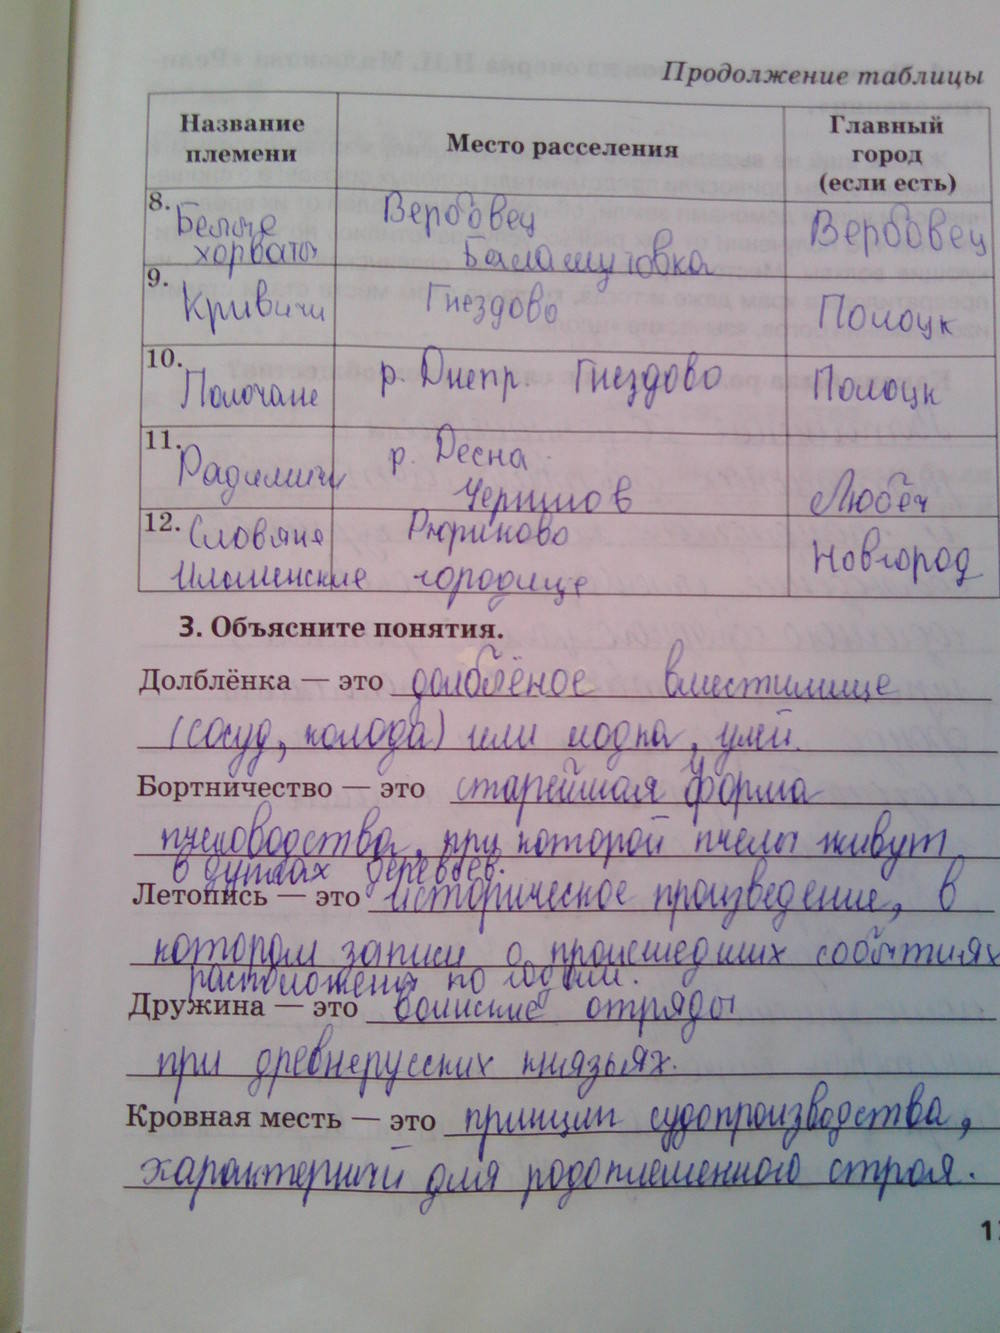 Продолжение таблицы
Название племени
Место расселения
Главный город (если есть)
8. Белые хорваты
Вербовец
Баламутовка
Вербовец
9. Кривичи
Гнездово
Полоцк
10. Полочане
р. Днепр. Гнездово
Полоцк
11. Радимичи
р Десна
Чернигов
Любеч
12. Словяне
Ильменские
Рюриково
городище
Новгород
3. Объясните понятия.
Долблёнка — это долблёное вместилище
(сосуд, колода) или лодка, улей.
Бортничество — это старейшая форма
пчеловодства, при которой пчелы живут
в дуплах деревьев.
Летопись — это историческое произведение, в
котором записи о происшедших событиях
расположены по годам.
Дружина — это воинские отряды
при древнерусских князьях.
Кровная месть — это принцип судопроизводства,
характерный для родоплеменного строя.